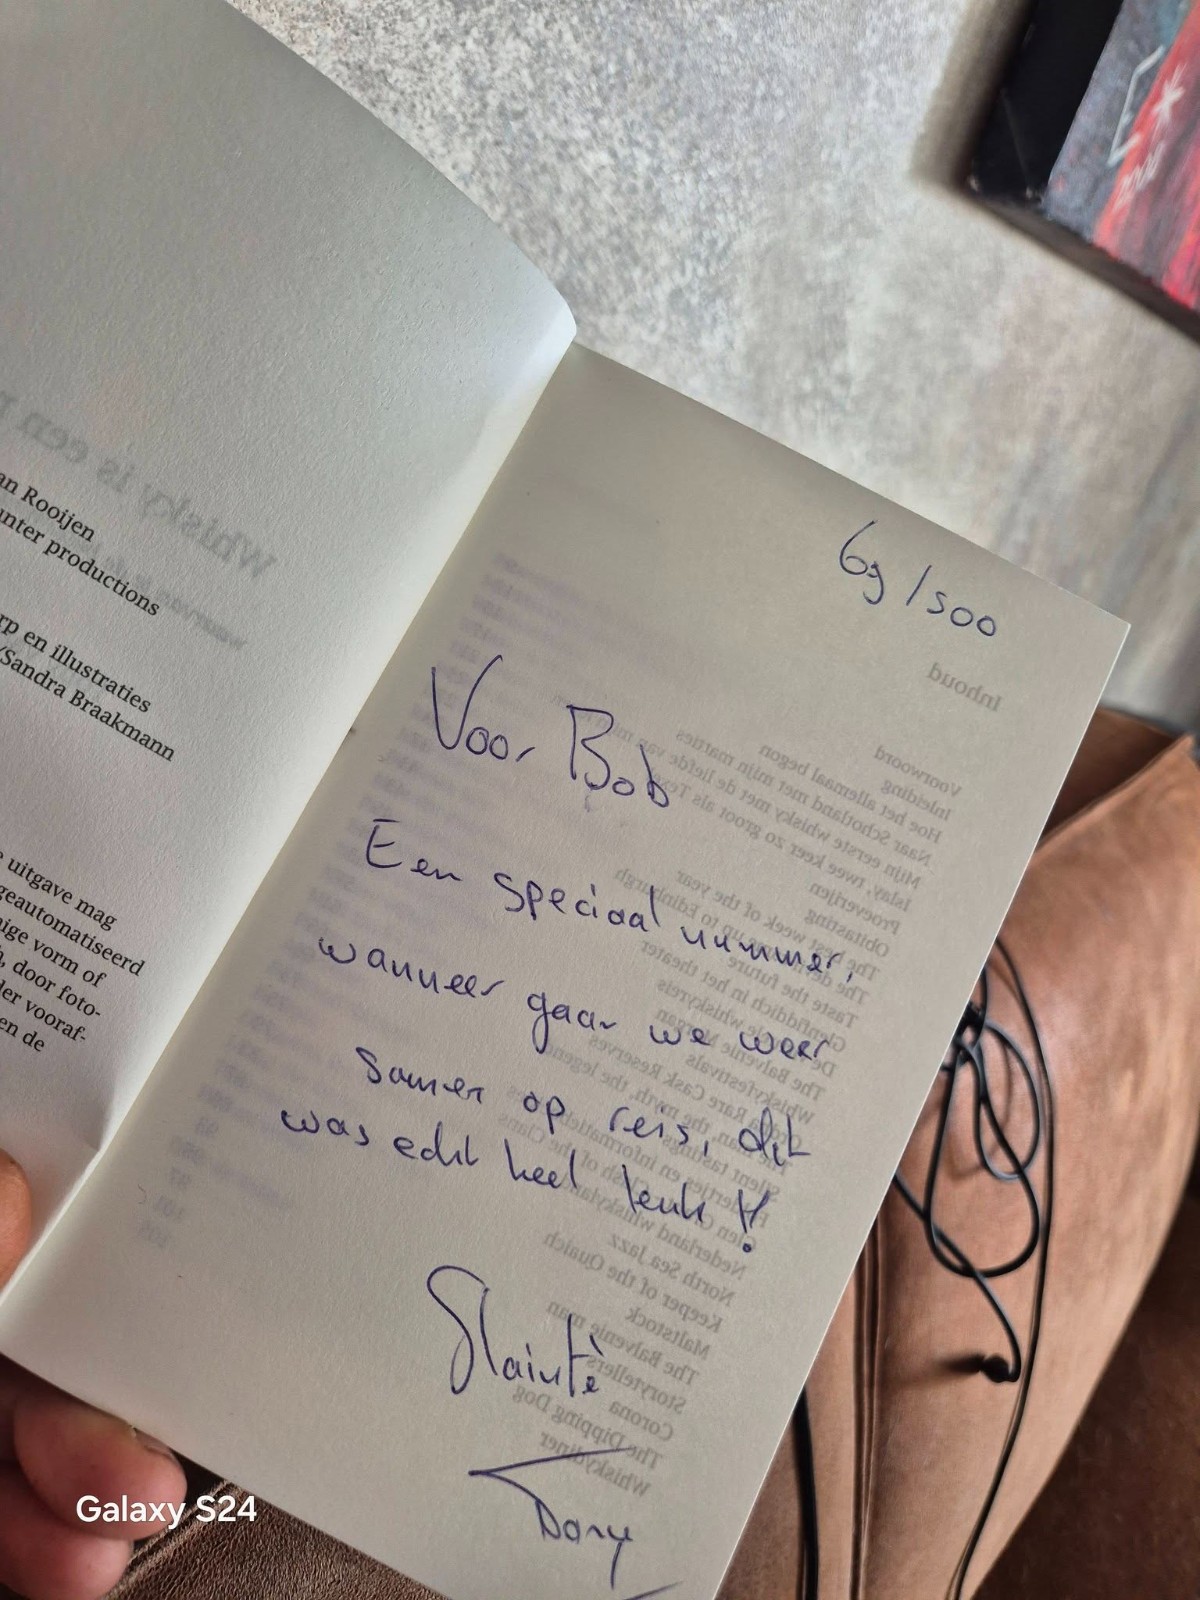 an Rooijen
unter productions
rp en illustraties
/Sandra Braakmann
e uitgave mag
geautomatiseerd
nige vorm of
n, door foto-
der vooraf-
en de
69/500
Voor Bob
Een speciaal nummer,
wanneer gaan we weer
samen op reis, dit
was echt heel leuk!!
Slaintè
Inhoud
Voorwoord
Inleiding
Hoe het allemaal begon
Naar Schotland met mijn matties
Mijn eerste whisky met de liefde van mijn
Islay, twee keer zo groot als Texel
Proeverijen
Obitasting
The best week of the year
up to Edinburgh
Taste the future
Glenfiddich in het theater
whiskyreis
The Balvenie
Whiskyfestivals
Rare Cask Reserves
man, the myth, the legend
Silent tastings
of the Clans
Nederland whiskyland
North Sea Jazz
Keeper of the Quaich
Maltstock
The Balvenie man
Storytellers
Corona
The Dipping Dog
Whiskydiner
Whisky is een
waarvan
Galaxy S24